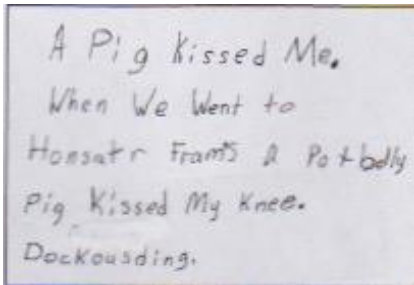 A Pig Kissed Me.
When We Went to
Honsatr Fram's a Potbelly
Pig Kissed My Knee.
Dockousding.